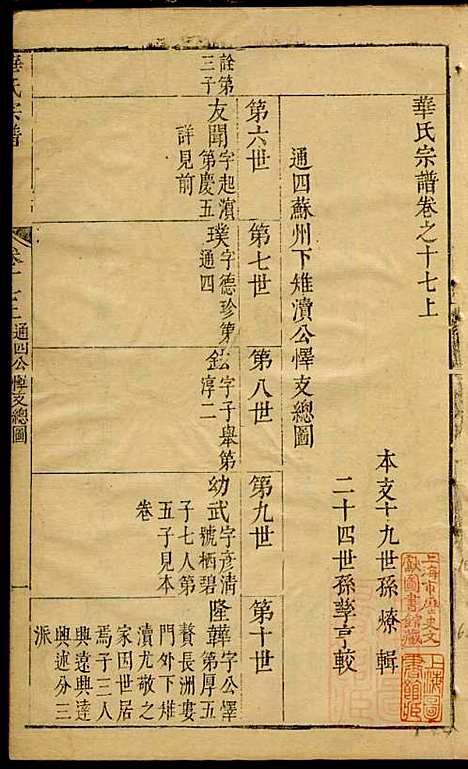 華氏宗譜卷之十七上
本支十九世孫燎輯
二十四世孫孳亨較
通四蘇州下雉瀆公懌支總圖
第六世
第七世
第八世
第九世
第十世
詮第三子
友聞字起濵
第慶五
詳見前
璞字德珍第
通四
鉉字子舉第
淳二
幼武字彥清
號栖碧
子七人第
五子見本
卷
隆韡字公懌
第厚五
贅長洲婁
門外下雉
瀆尤敬之
家因世居
焉子三人
興遠興達
興述分三
派
華氏宗譜
卷十七上
通四公懌支總圖
上海市歷史文獻圖書館藏
上海圖書館藏